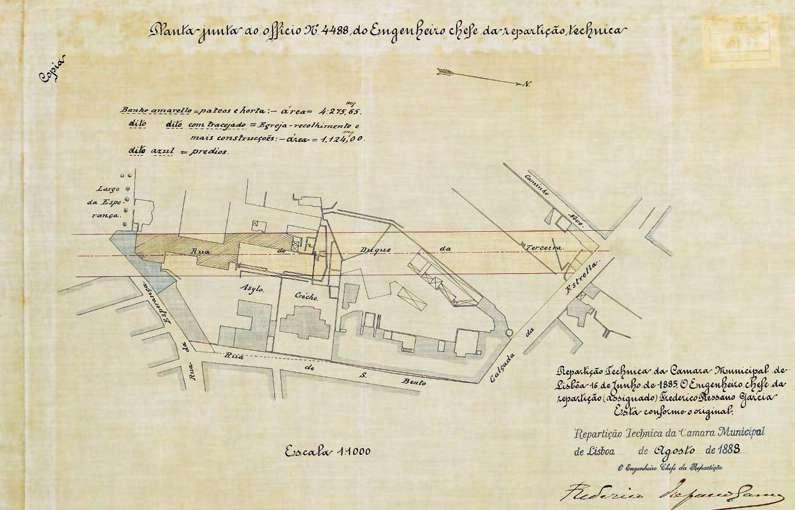 Planta junta ao officio Nº 4488, do Engenheiro chefe da repartição technica
Copia
N.
Banho amarello = pateos e horta: - área = 4:275,65.
dito dito com tracejado = Egreja - recolhimento e
mais construcções: - área = 1,124,00
dito azul = predios.
Largo
da Espe
rança.
Caminho Novo
Rua do Duque da Terceira
Asylo.
Créche.
Calçada da Estrella
Rua da Esperança
Rua de S. Bento
Escala 1:1000
Repartição Technica da Camara Municipal de
Lisbôa 16 de Junho de 1885 O Engenheiro chefe da
repartição (assignado) Frederico Ressano Garcia
Está conforme o original.
Repartição Technica da Camara Municipal
de Lisboa de Agosto de 1888
O Engenheiro Chefe da Repartição
Frederico Ressano Garcia